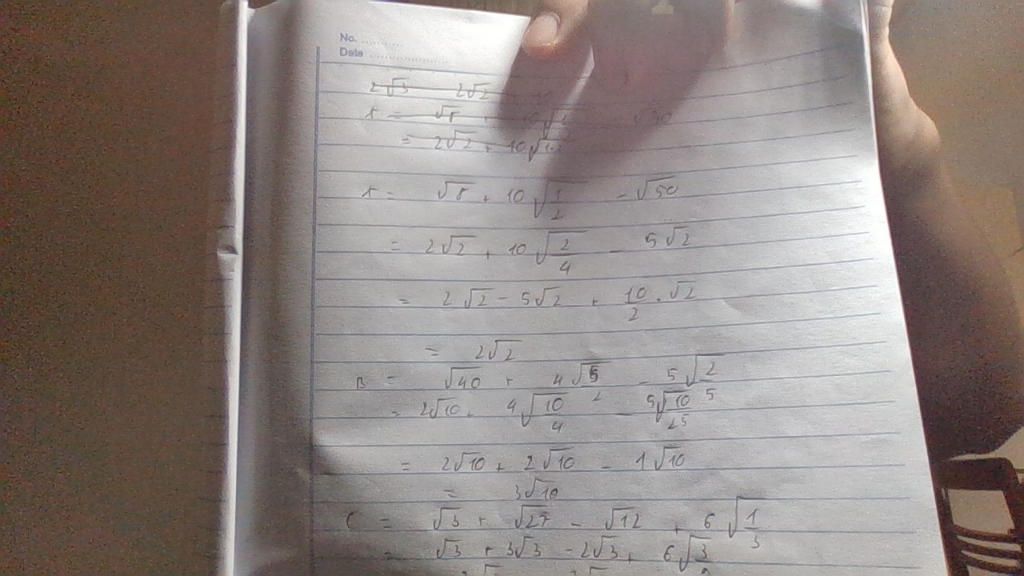 No.
Date
2√3 2√2
A = √8 +
= 2√2 + 10√
A = √8 + 10√(1/2) - √50
= 2√2 + 10√(2/4) - 5√2
= 2√2 - 5√2 + 10/2 . √2
= 2√2
B = √40 + 4√(5/2) - 5√(2/5)
= 2√10 + 4√(10/4) - 5√(10/25)
= 2√10 + 2√10 - 1√10
= 3√10
C = √3 + √27 - √12 + 6√(1/3)
= √3 + 3√3 - 2√3 + 6√(3/9)